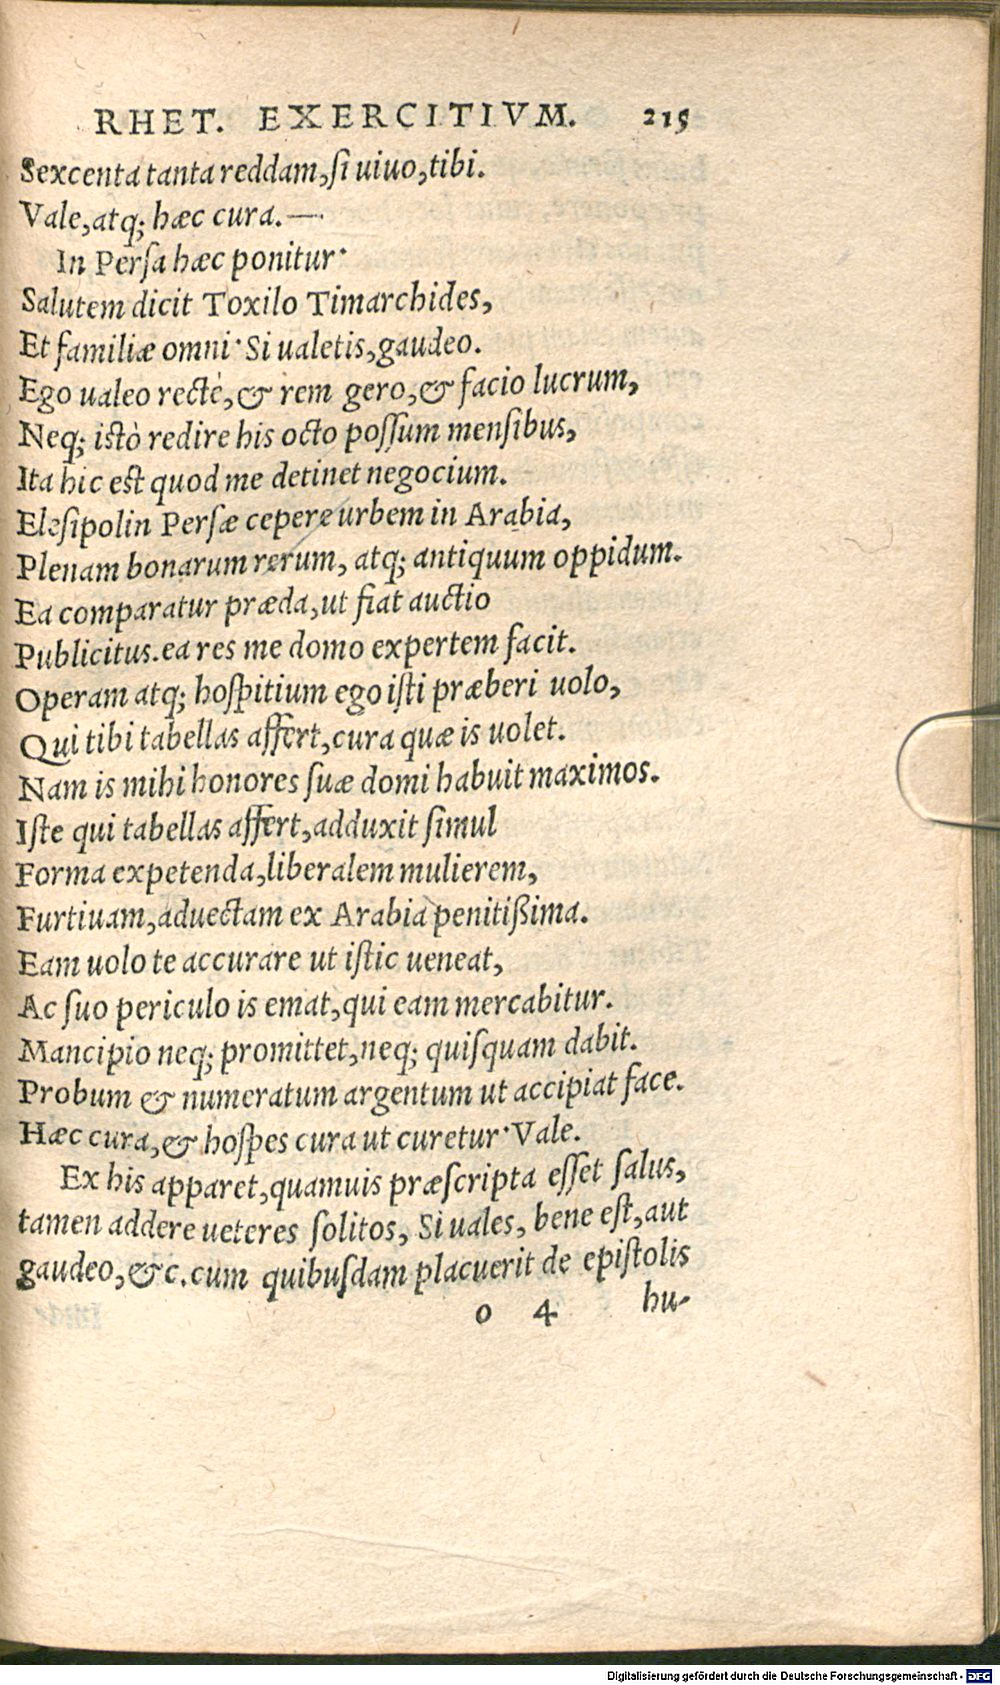 RHET. EXERCITIVM. 215
Sexcenta tanta reddam, si uiuo, tibi.
Vale, atq; hæc cura.—
In Persa hæc ponitur·
Salutem dicit Toxilo Timarchides,
Et familiæ omni· Si ualetis, gaudeo.
Ego ualeo rectè, & rem gero, & facio lucrum,
Neq; istò redire his octo possum mensibus,
Ita hic est quod me detinet negocium.
Elesipolin Persæ cepere urbem in Arabia,
Plenam bonarum rerum, atq; antiquum oppidum.
Ea comparatur præda, ut fiat auctio
Publicitus. ea res me domo expertem facit.
Operam atq; hospitium ego isti præberi uolo,
Qui tibi tabellas affert, cura quæ is uolet.
Nam is mihi honores suæ domi habuit maximos.
Iste qui tabellas affert, adduxit simul
Forma expetenda, liberalem mulierem,
Furtiuam, aduectam ex Arabia penitißima.
Eam uolo te accurare ut istic ueneat,
Ac suo periculo is emat, qui eam mercabitur.
Mancipio neq; promittet, neq; quisquam dabit.
Probum & numeratum argentum ut accipiat face.
Hæc cura, & hospes cura ut curetur· Vale.
Ex his apparet, quamuis præscripta esset salus,
tamen addere ueteres solitos, Si uales, bene est, aut
gaudeo, &c. cum quibusdam placuerit de epistolis
o 4 hu-
Digitalisierung gefördert durch die Deutsche Forschungsgemeinschaft - DFG